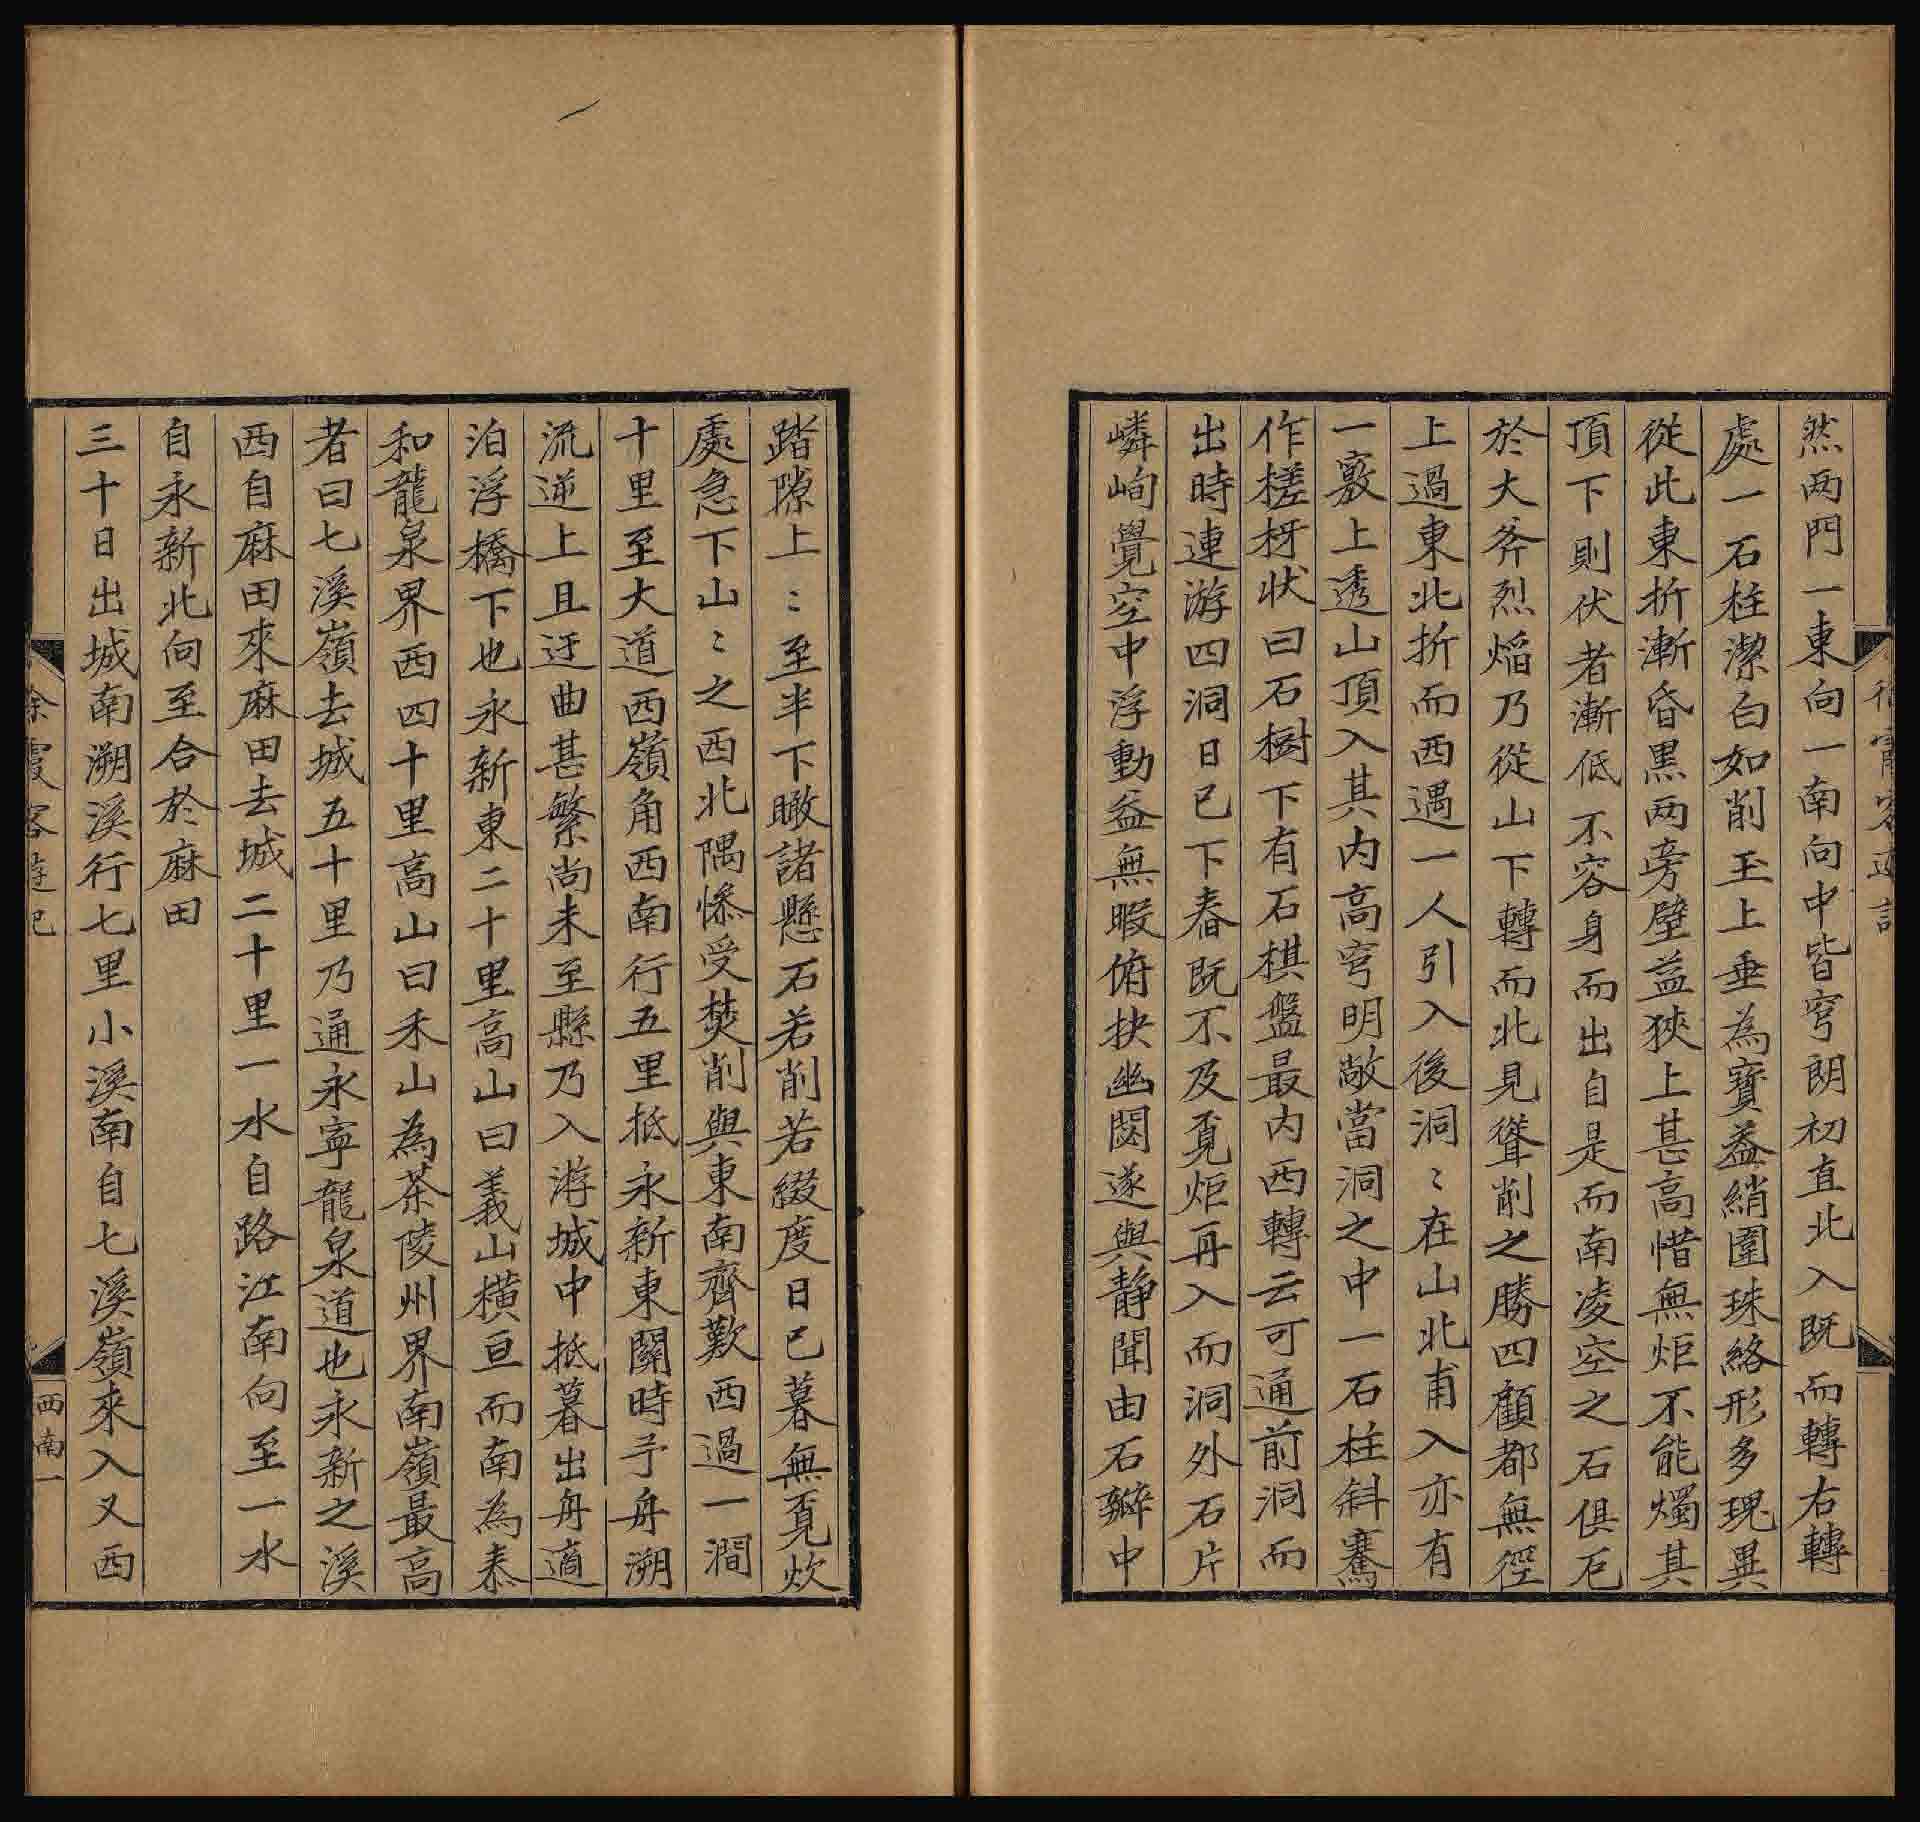 徐霞客遊記
然两門一東向一南向中皆穹朗初直北入既而轉右轉
處一石柱潔白如削玉上垂為寶蓋綃圍珠絡形多瑰異
從此東折漸昏黒两旁壁益狹上甚高惜無炬不能燭其
頂下則伏者漸低不容身而出自是而南凌空之石俱厄
於大斧烈焰乃從山下轉而北見聳削之勝四顧都無徑
上過東北折而西遇一人引入後洞〻在山北甫入亦有
一竅上透山頂入其内高穹明敞當洞之中一石柱斜騫
作槎枒状曰石樹下有石棋盤最内西轉云可通前洞而
出時連游四洞日已下舂既不及覓炬再入而洞外石片
嶙峋覺空中浮動益無暇俯抉幽閟遂與静聞由石瓣中
踏隙上〻至半下瞰諸懸石若削若綴度日已暮無覓炊
處急下山〻之西北隅慘受焚削與東南齊歎西過一澗
十里至大道西嶺角西南行五里抵永新東關時予舟溯
流逆上且迂曲甚繁尚未至縣乃入游城中抵暮出舟適
泊浮橋下也永新東二十里高山曰義山横亘而南為泰
和龍泉界西四十里高山曰禾山為茶陵州界南嶺最高
者曰七溪嶺去城五十里乃通永寧龍泉道也永新之溪
西自麻田來麻田去城二十里一水自路江南向至一水
自永新北向至合於麻田
三十日出城南溯溪行七里小溪南自七溪嶺來入又西
徐霞客遊記
西南一